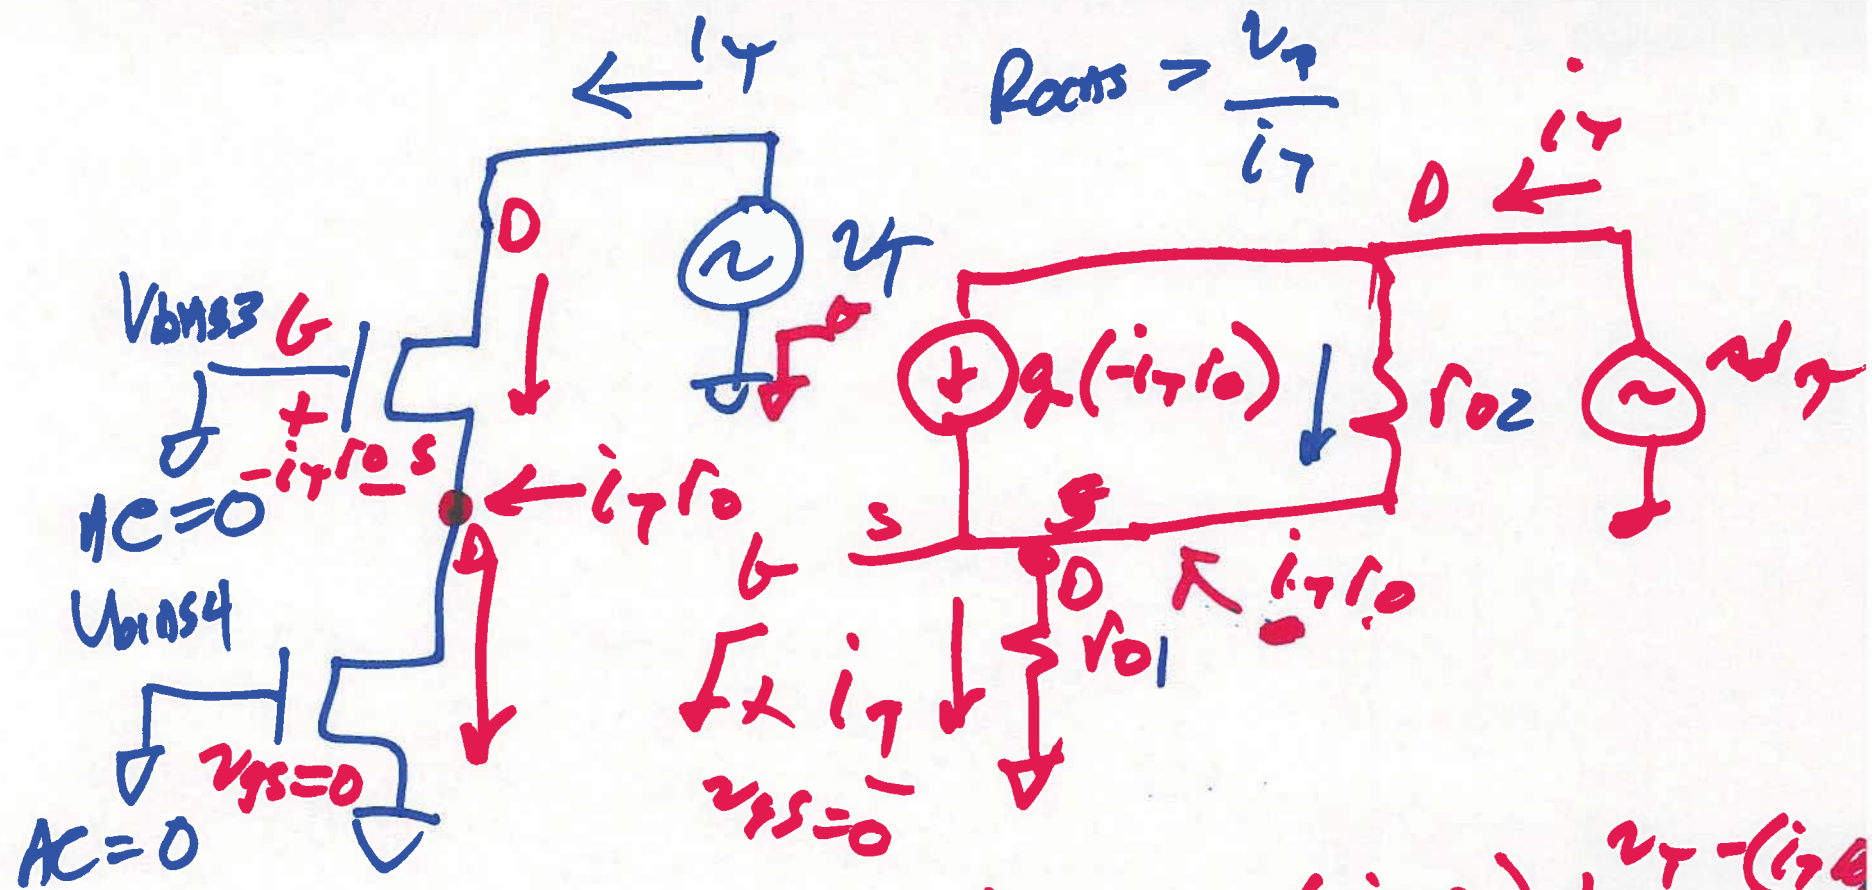 i_T
R_OCAS = v_T / i_T
i_T
D
D
v_T
Vbias3 G
g(-i_T r_o)
r_o2
v_T
+
-i_T r_o - S
AC=0
i_T r_o
S
S
D
G
D
i_T r_o
Vbias4
r_o1
i_T
v_gs=0
v_gs=0
AC=0
v_T -(i_T